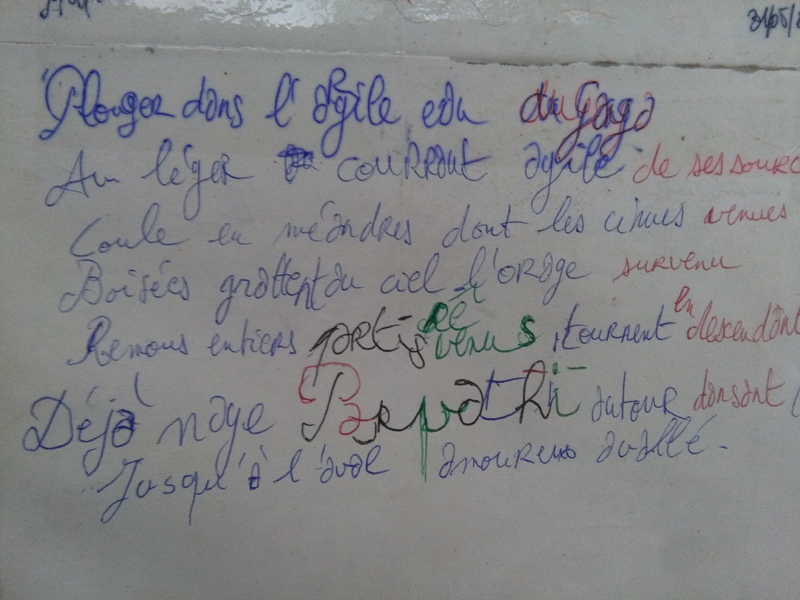 31/05/
Plonger dans l'agile eau du Gange
Au léger courrant agile de ses sourc
Coule en méandres dont les cimes venues
Boisées grattent du ciel l'orage survenu
Remous entiers partis revenus, tournent en descendant
Déjà nage Parvathi autour dansant
Jusqu'à l'aval amoureux avallé.